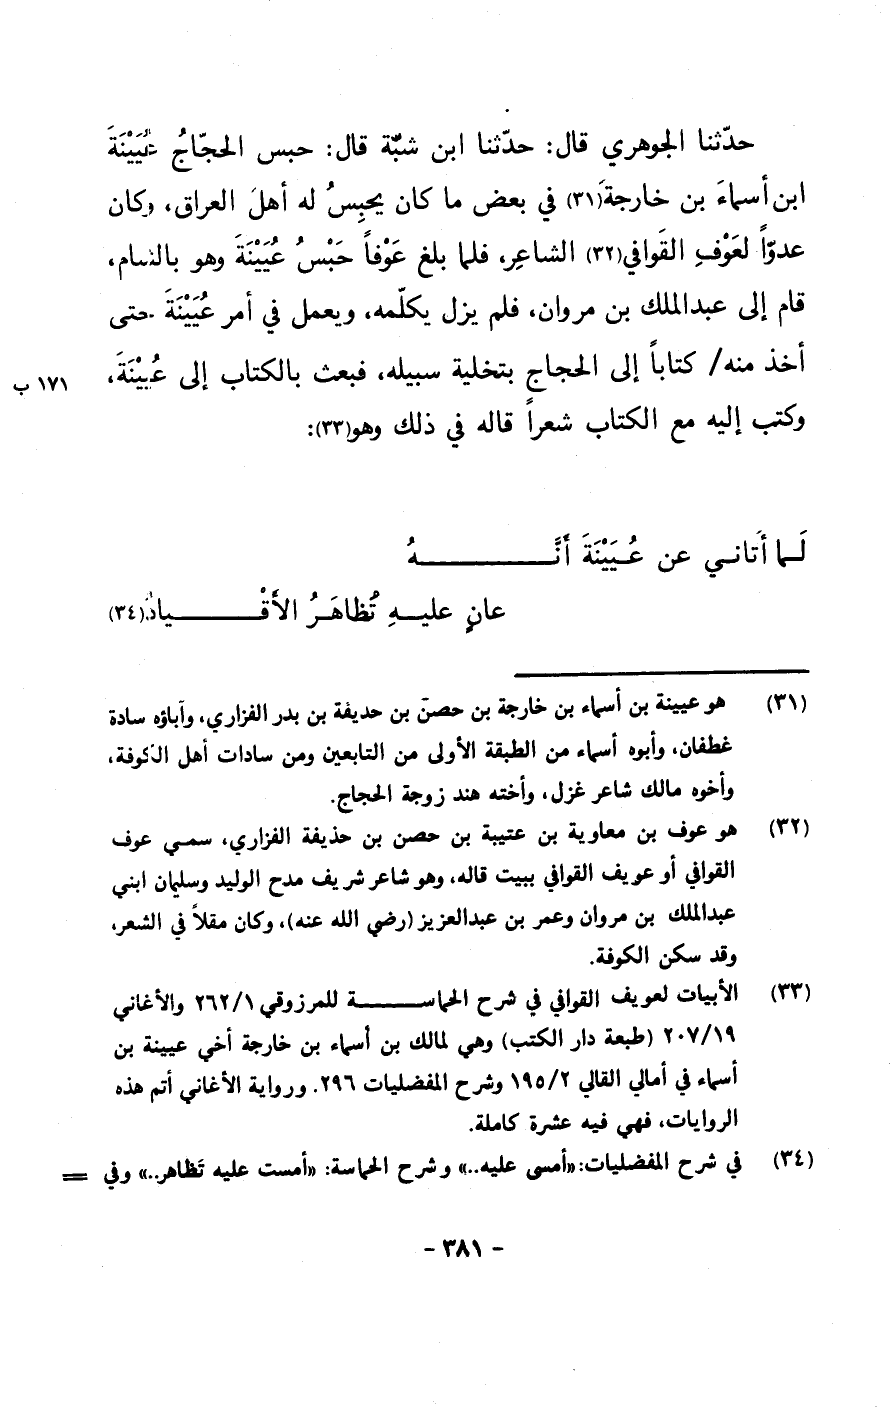 حدّثنا الجوهري قال: حدّثنا ابن شبّة قال: حبس الحجّاجُ عُيَيْنَةَ
ابن أسماءَ بن خارجةَ(٣١) في بعض ما كان يحبِسُ له أهلَ العراق، وكان
عدوّاً لعَوْفِ القَوافي(٣٢) الشاعِرِ، فلما بلغ عَوْفاً حَبْسُ عُيَيْنَةَ وهو بالشام،
قام إلى عبدالملك بن مروان، فلم يزل يكلّمه، ويعمل في أمر عُيَيْنَةَ حتى
أخذ منه/ كتاباً إلى الحجاج بتخلية سبيله، فبعث بالكتاب إلى عُيَيْنَةَ،
١٧١ ب
وكتب إليه مع الكتاب شعراً قاله في ذلك وهو(٣٣):
لَـما أَتانـي عن عُـيَيْنَةَ أَنَّـــــــــهُ
عانٍ عليـهِ تُظاهَـرُ الأَقْـــــــيادُ(٣٤)
(٣١) هو عيينة بن أسماء بن خارجة بن حصن بن حذيفة بن بدر الفزاري، وآباؤه سادة
غطفان، وأبوه أسماء من الطبقة الأولى من التابعين ومن سادات أهل الكوفة،
وأخوه مالك شاعر غزل، وأخته هند زوجة الحجاج.
(٣٢) هو عوف بن معاوية بن عتيبة بن حصن بن حذيفة الفزاري، سمـي عوف
القوافي أو عويف القوافي ببيت قاله، وهو شاعر شريف مدح الوليد وسليمان ابني
عبدالملك بن مروان وعمر بن عبدالعزيز (رضي الله عنه)، وكان مقلاً في الشعر،
وقد سكن الكوفة.
(٣٣) الأبيات لعويف القوافي في شرح الحماســـــــة للمرزوقي ٢٦٢/١ والأغاني
٢٠٧/١٩ (طبعة دار الكتب) وهي لمالك بن أسماء بن خارجة أخي عيينة بن
أسماء في أمالي القالي ١٩٥/٢ وشرح المفضليات ٢٩٦. ورواية الأغاني أتم هذه
الروايات، فهي فيه عشرة كاملة.
(٣٤) في شرح المفضليات: «أمسى عليه..» وشرح الحماسة: «أمست عليه تَظاهر..» وفي =
- ٣٨١ -